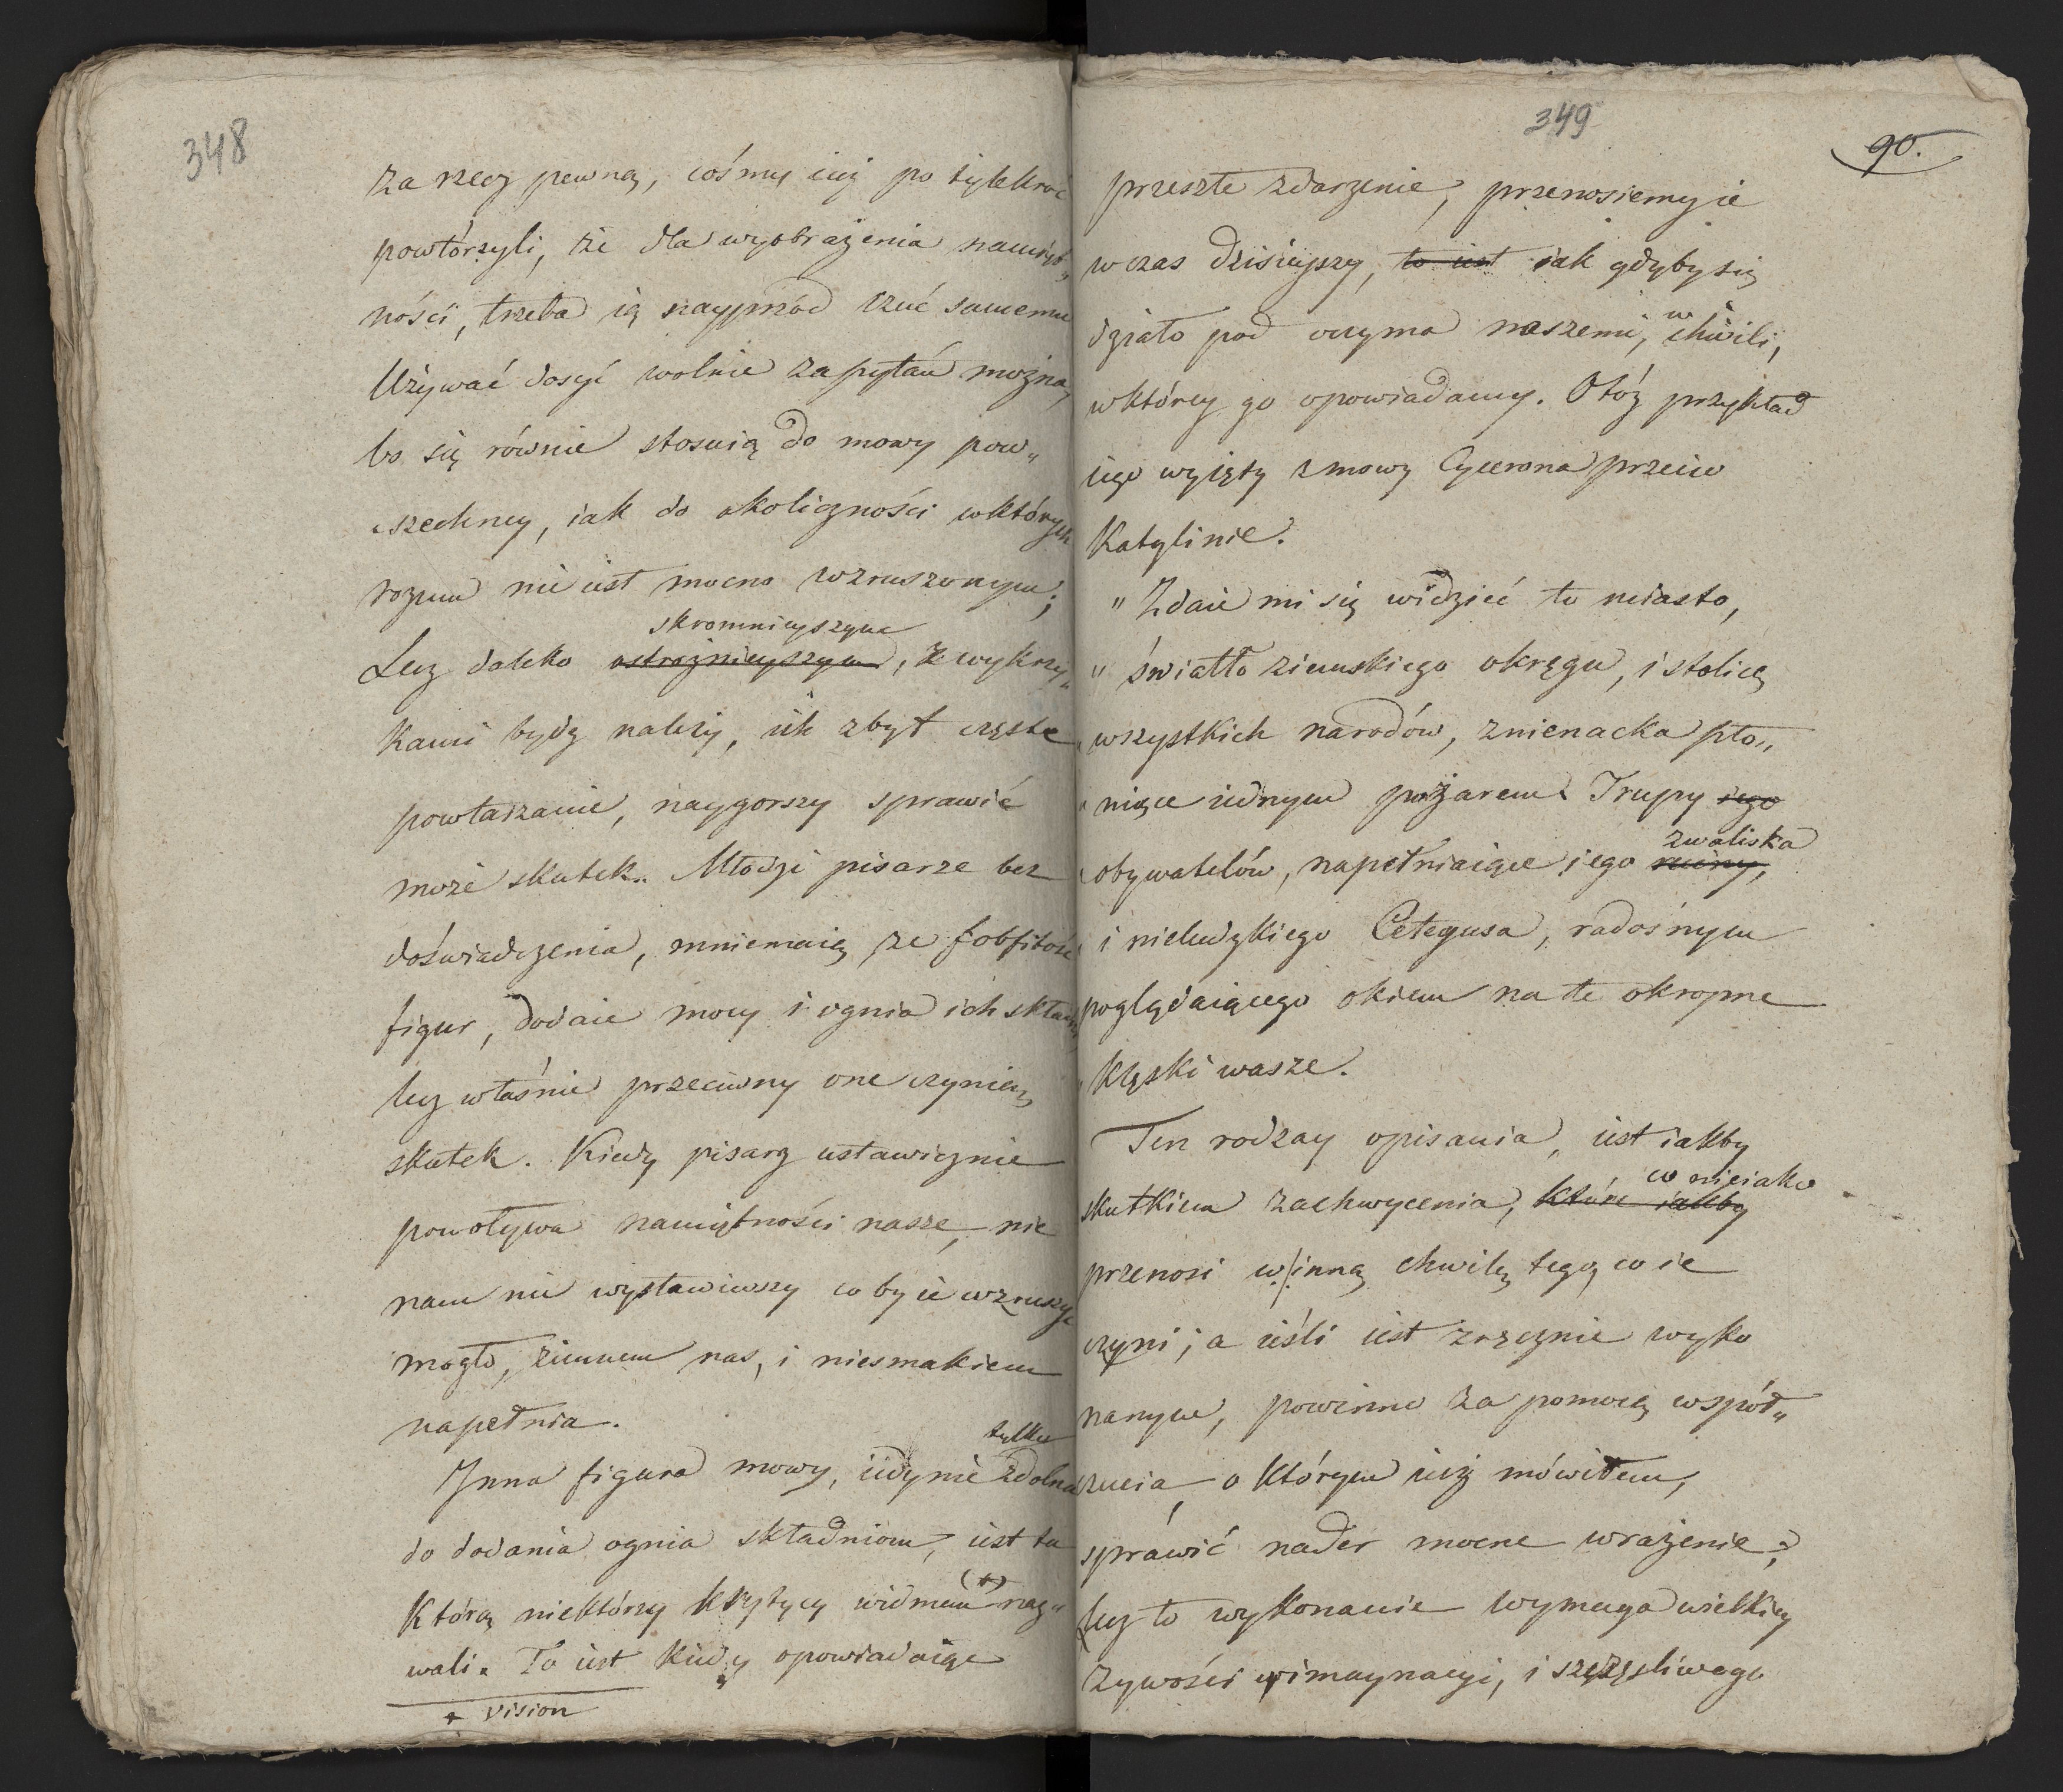 348
za rzecz pewną, cośmy iuż po tylekroć
powtórzyli, że dla wyobrażenia namięt„
ności, trzeba ią nayprzód czuć samemu
Używać dosyć wolnie zapytań można,
bo się równie stosuią do mowy pow„
szechney, iak do okoliczności wktórych
rozum nie iest mocno wzruszonym;
skromnieyszym
Lecz daleko ostrożnieyszym, z wykrzy„
kami bydź należy, ich zbyt częste
powtarzanie, naygorszy sprawić
może skutek. Młodzi pisarze bez
doświadczenia, mniemaią że obfitość
figur, dodaie mocy i ognia ich skład
lecz właśnie przeciwny one czynią
skutek. Kiedy pisarz ustawicznie
powoływa namiętności nasze, nie
nam nie wystawiwszy co by ie wzruszyć
mogło, zimnem nas, i niesmakiem
napełnia.
tylko
Jnna figura mowy, iedynie zdolna
do dodania ognia składniom, iest ta
Którą niektórzy Krytycy widmem (+) naz„
wali. To iest kiedy opowiadaiąc
+ vision
349
90.
przeszłe zdarzenie, przenosiemy ie
wczas dzisieyszy, to iest iak gdyby się
działo pod oczyma naszemi, w chwili,
wktórey go opowiadamy. Otóż przykład
iego wyięty zmowy Cycerona przeciw
Katylinie.
„Zdaie mi się widzieć to miasto,
„światło ziemskiego okręgu, i stolicę
„wszystkich narodów, znienacka pło„
„nące iednym pożarem. Trupy iego
zwaliska
„obywatelów, napełniaiące jego ruiny,
„i nieludzkiego Cetegusa, radośnym
poglądaiącego okiem na te okropne
„klęski wasze.
Ten rodzay opisania, iest iakby
w nieiako
skutkiem zachwycenia, które iakby
przenosi w inną chwilę tego, co ie
czyni; a ieśli iest zręcznie wyko
nanym, powinno za pomocą współ„
czucia, o którym iuż mówiłem,
sprawić nader mocne wrażenie;
lecz to wykonanie wymaga wielkiey
żywości w imaynacyi, i szczęśliwego